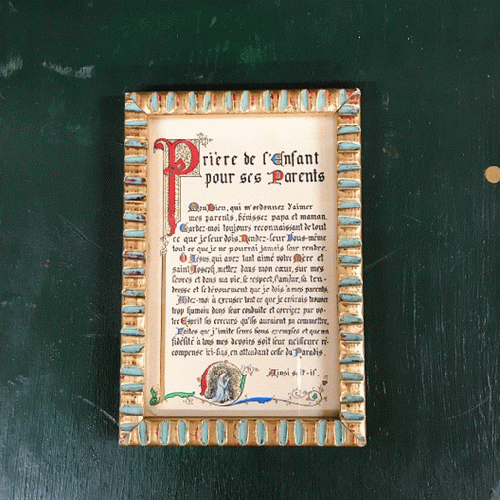 Prière de l'Enfant
pour ses Parents
Mon Dieu, qui m'ordonnez d'aimer
mes parents, bénissez papa et maman.
Gardez-moi toujours reconnaissant de tout
ce que je leur dois. Rendez-leur Vous-même
tout ce que je ne pourrai jamais leur rendre.
O Jésus, qui avez tant aimé votre Mère et
saint Joseph, mettez dans mon cœur, sur mes
lèvres et dans ma vie, le respect, l'amour, la ten-
dresse et le dévouement que je dois à mes parents.
Aidez-moi à excuser tout ce que je croirais trouver
trop humain dans leur conduite et corrigez par vo-
tre Esprit les erreurs qu'ils auraient pu commettre.
Faites que j'imite leurs bons exemples et que ma
fidélité à tous mes devoirs soit leur meilleure ré-
compense ici-bas, en attendant celle du Paradis.
Ainsi soit-il.